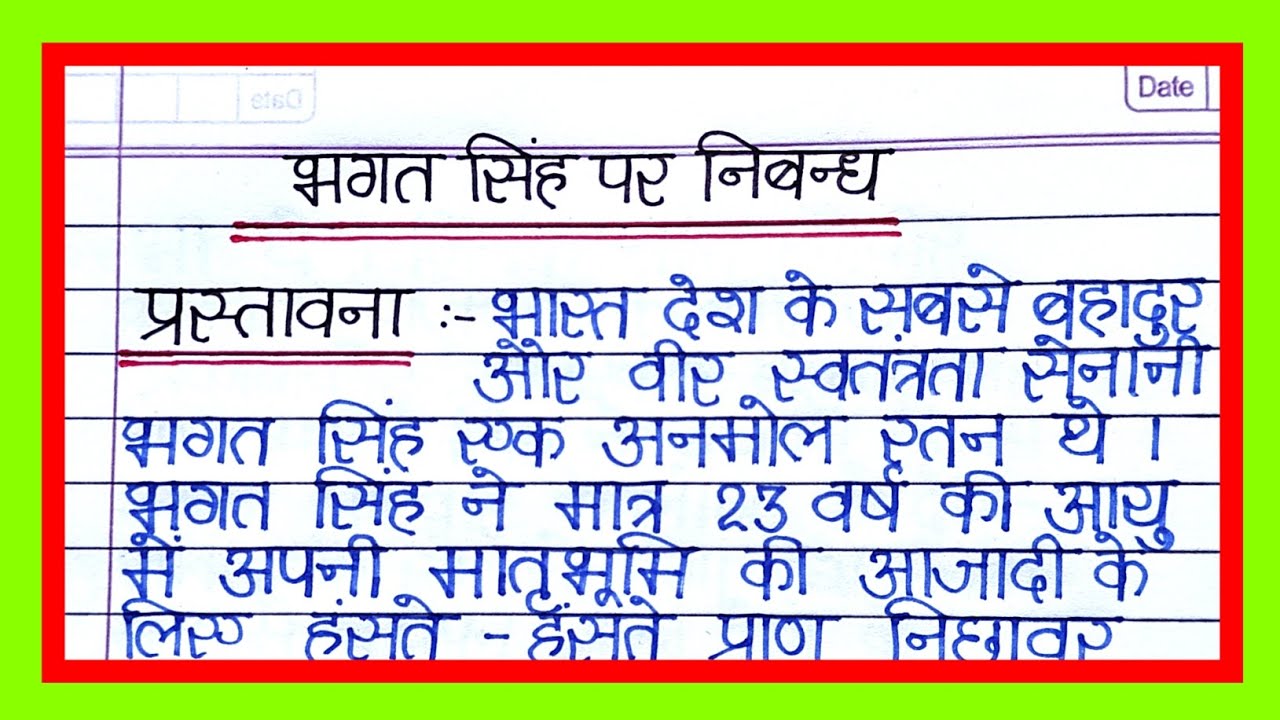 Date
भगत सिंह पर निबन्ध
प्रस्तावना :- भारत देश के सबसे बहादुर
और वीर स्वतंत्रता सेनानी
भगत सिंह एक अनमोल रतन थे ।
भगत सिंह ने मात्र 23 वर्ष की आयु
में अपनी मातृभूमि की आजादी के
लिए हंसते - हंसते प्राण निछावर